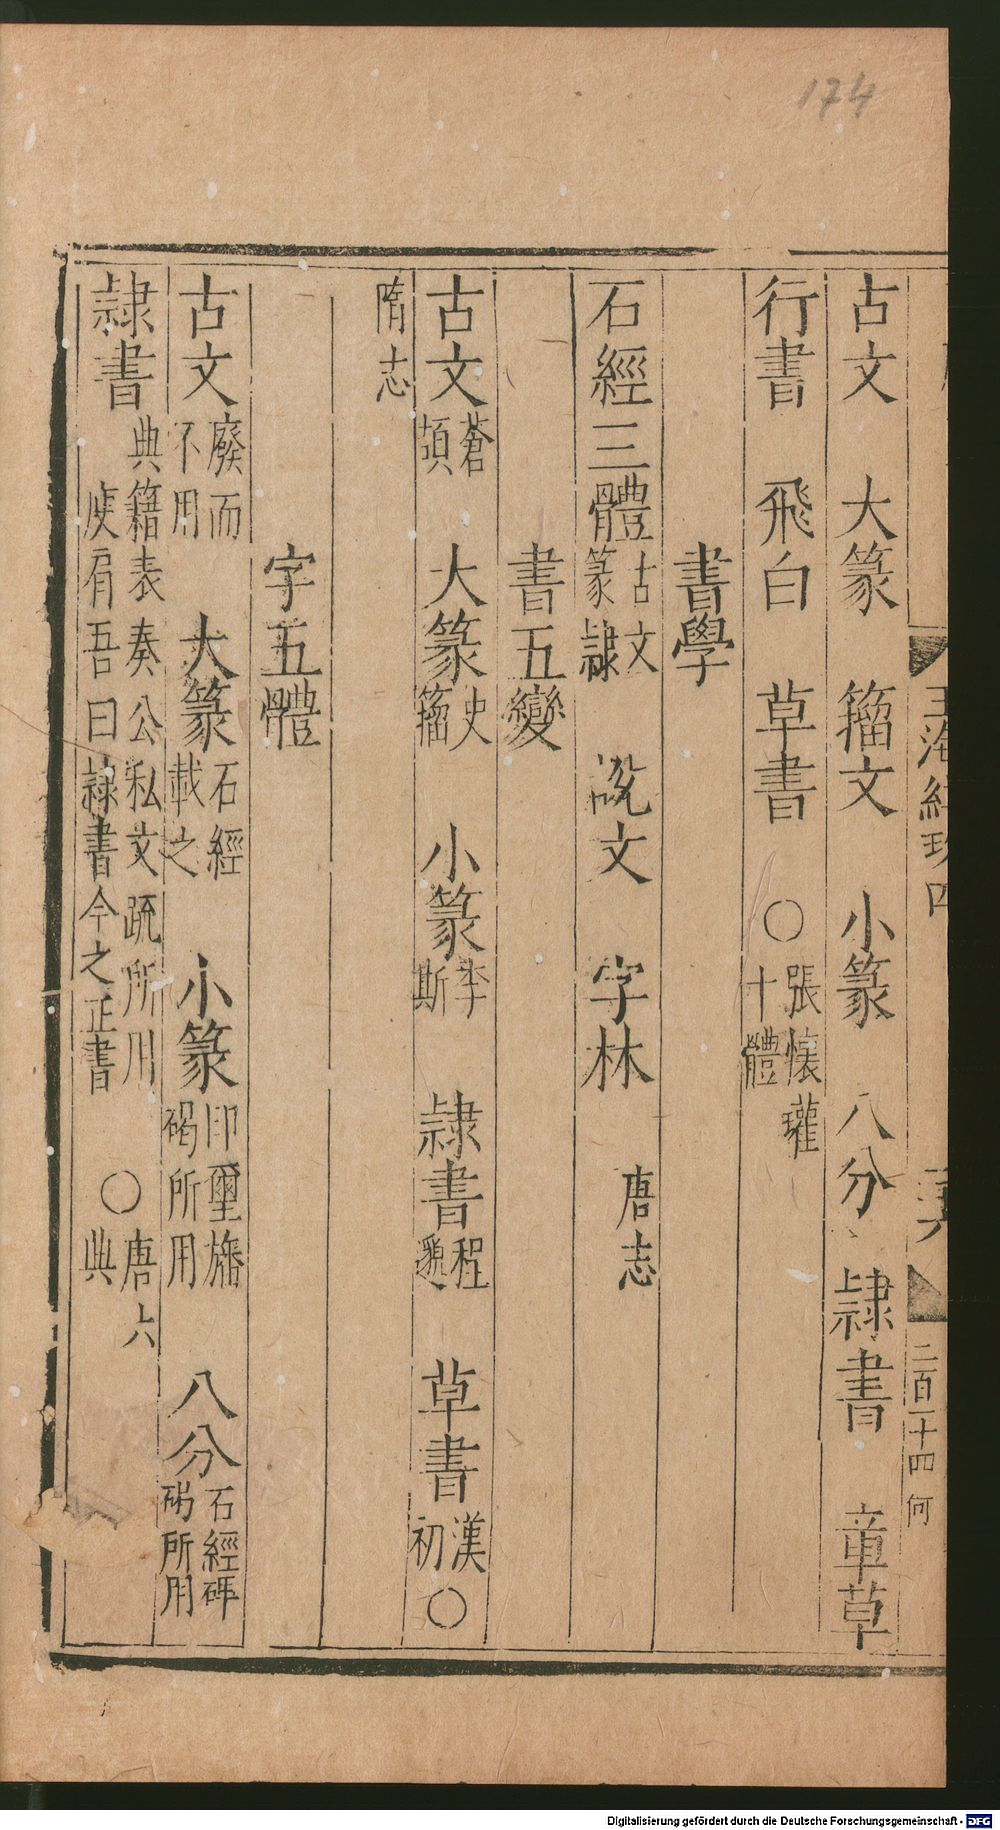 174
古文　大篆　籀文　小篆　八分　隷書　章草
行書　飛白　草書　○張懷瓘十體
書學
石經三體古文篆隷　說文　字林　唐志
書五變
古文蒼頡　大篆史籀　小篆李斯　隷書程邈　草書漢初○
隋志
字五體
古文廢而不用　大篆石經載之　小篆印璽旛碣所用　八分石經碑碣所用
隷書典籍表奏公私文疏所用庾肩吾曰隷書今之正書　○唐六典
二百十四 何
Digitalisierung gefördert durch die Deutsche Forschungsgemeinschaft - DFG